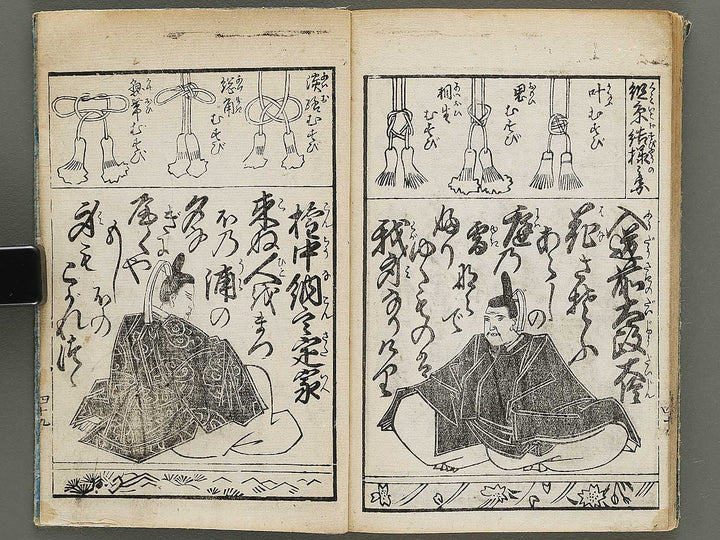 組糸結様之事
くみいとむすびやうの
叶むすび
思むすび
相生むすび
入道前太政大臣
花さそふ
あらしの
庭乃
雪
ならで
ふり
ゆくものは
我身なりけり
淡路むすび
総角むすび
むすび
権中納言定家
来ぬ人を
まつ
ほの
浦の
夕
なぎに
やくや
もしほの
身も
こがれつゝ
四十九